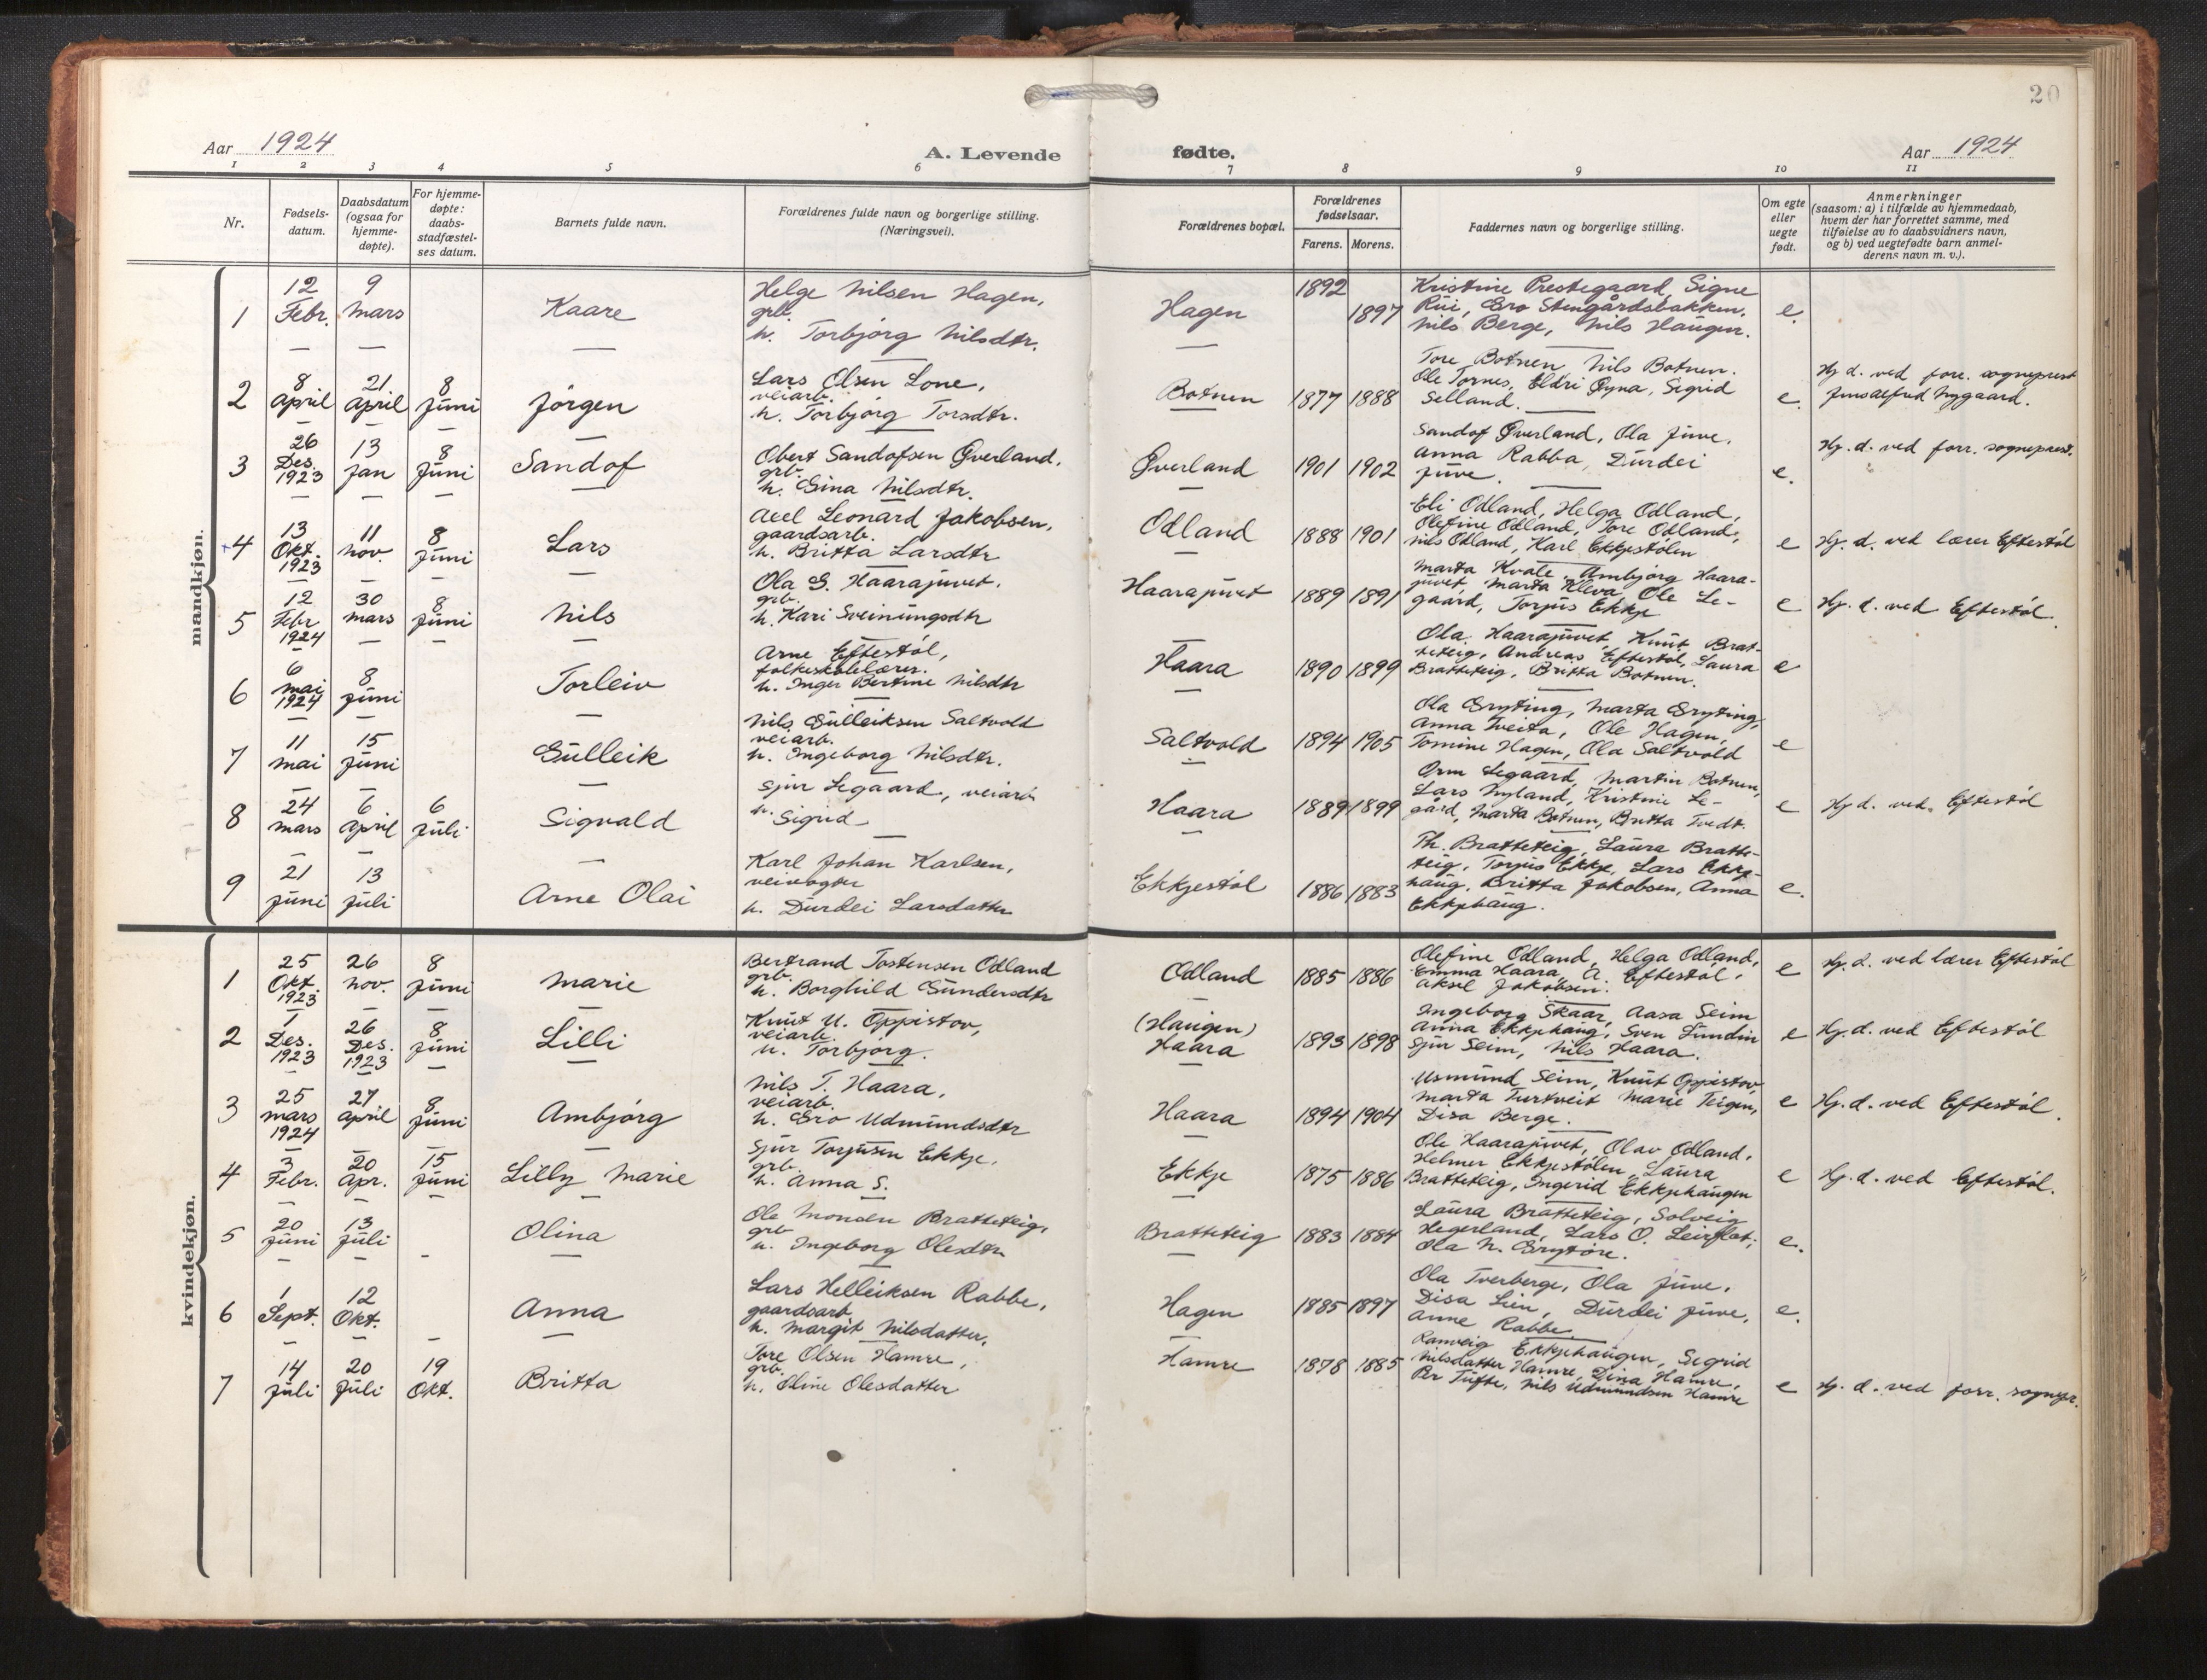 20
Aar 1924
A. Levende fødte.
Aar 1924
1 2 3 4 5 6 7 8 9 10 11
Nr.
Fødsels-
datum.
Daabsdatum
(ogsaa for
hjemme-
døpte).
For hjemme-
døpte:
daabs-
stadfæstel-
ses datum.
Barnets fulde navn.
Forældrenes fulde navn og borgerlige stilling.
(Næringsvei).
Forældrenes bopæl.
Forældrenes
fødselsaar.
Farens. Morens.
Faddernes navn og borgerlige stilling.
Om egte
eller
uegte
født.
Anmerkninger
(saasom: a) i tilfælde av hjemmedaab,
hvem der har forrettet samme, med
tilføielse av to daabsvidners navn,
og b) ved uegtefødte barn anmel-
derens navn m. v.).
mandkjøn.
1
12
Febr.
9
Mars
Kaare
Helge Nilsen Hagen,
grb.
h. Torbjørg Nilsdtr.
Hagen
1892
1897
Kristine Prestegaard, Signe
Rui, Gro Stengårdsbakken.
Nils Berge, Nils Haugen.
e.
2
8
April
21.
April
8
Juni
Jørgen
Lars Olsen Lone,
veiarb.
h. Torbjørg Torsdtr.
Botnen
1877
1888
Tore Botnen, Nils Botnen.
Ole Tornes, Eldri Øyna, Sigrid
Selland.
e.
Hj d. ved forr. sogneprest
Jens Alfred Nygaard.
3
26
Des.
1923
13
Jan
8
Juni
Sandof
Obert Sandofsen Øverland.
grb.
h. Gina Nilsdtr.
Øverland
1901
1902
Sandof Øverland, Ola Juve,
Anna Rabba, Durdei
Juve.
e.
Hj. d. ved forr. sogneprest.
4
13
Okt.
1923
11
Nov.
8
Juni
Lars
Axel Leonard Jakobsen,
gaardsarb.
h. Britta Larsdtr
Odland
1888
1901
Eli Odland, Helga Odland,
Olefine Odland, Tore Odland,
Nils Odland, Karl Ekkjestølen
e
Hj. d. ved lærer Eftestøl
5
12
Febr
1924
30
Mars
8
Juni
Nils
Ola G. Haarajuvet.
grb.
h. Kari Sveinungsdtr
Haarajuvet
1889
1891
Marta Kvale, Ambjørg Haara-
juvet Marta Kleva Ole Le-
gaard, Torjus Ekkje
e
Hj. d. ved Eftestøl.
6
6
Mai
1924
8
Juni
Torleiv
Arne Eftestøl,
folkeskolelærer.
h. Inger Bertine Nilsdtr
Haara
1890
1899
Ola Haarajuvet, Knut Brat-
teteig, Andreas Eftestøl, Laura
Bratteteig, Britta Botnen.
e
7
11
Mai
15
Juni
Gulleik
Nils Gulleiksen Saltvold
veiarb.
h. Ingeborg Nilsdtr.
Saltvold
1894
1905
Ola Gryting, Marta Gryting,
Anna Tveita, Ole Hagen,
Tomine Hagen, Ola Saltvold
e
8
24
Mars
6
April
6
Juli
Sigvald
Sjur Legaard, veiarb
h. Sigrid
Haara
1889
1899
Orm Legaard, Martin Botnen,
Lars Nyland, Kristine Le-
gård, Marta Botnen, Britta Tvedt.
e
Hj d. ved. Eftestøl
9
21
Juni
13
Juli
Arne Olai
Karl Johan Karlsen,
veivogter
h. Durdei Larsdatter
Ekkjestøl
1886
1883
Th. Bratteteig, Laura Bratte-
teig, Torjus Ekkje, Lars Ekkje-
haug, Britta Jakobsen, Anna
Ekkjehaug.
e.
kvindekjøn.
1
25
Okt.
1923
26
Nov.
8
Juni
Marie
Bertrand Tostensen Odland
grb.
h. Borghild Gundersdtr
Odland
1885
1886
Olefine Odland, Helga Odland,
Emma Haara, A. Eftestøl,
Aksel Jakobsen.
e
Hj. d. ved lærer Eftestøl
2
1
Des.
1923
26
Des.
1923
8
Juni
Lilli
Knut U. Oppistov,
veiarb.
h. Torbjørg.
(Haugen)
Haara
1893
1898
Ingeborg Skaar, Aasa Seim
Anna Ekkjehaug, Sven Lundin
Sjur Seim, Nils Haara.
e
Hj. d. ved Eftestøl
3
25
Mars
1924
27
April
8
Juni
Ambjørg
Nils T. Haara,
veiarb.
h. Gro Udmundsdtr
Haara
1894
1904
Usmund Seim, Knut Oppistov
Marta Turtveit Marie Teigen,
Disa Berge.
e
Hj. d. ved Eftestøl.
4
3
Febr.
20
Apr.
15
Juni
Lilly Marie
Sjur Torjusen Ekkje.
grb.
h. Anna S.
Ekkje
1875
1886
Ole Haarajuvet, Olav Odland.
Helmer Ekkjestølen, Laura
Bratteteig, Ingerid Ekkjehaugen
e
Hj. d. ved Eftestøl.
5
20
Juni
13
Juli
Olina
Ole Monsen Bratteteig,
grb
h. Ingeborg Olesdtr
Bratteteig
1883
1884
Laura Bratteteig, Solveig
Hegerland, Lars O. Leirflat,
Ola N. Grytøre.
e.
6
1
Sept.
12
Okt.
Anna
Lars Helleiksen Rabbe,
gaardsarb.
h. Margit Nilsdatter.
Hagen
1885
1897
Ola Tverberge, Ola Juve.
Disa Lien, Durdei Juve,
Anne Rabbe.
e.
7
14
Juli
20
Juli
19
Okt.
Britta
Tore Olsen Hamre,
grb.
h. Oline Olesdatter
Hamre
1878
1885
Ranveig Ekkjehaugen, Sigrid
Nilsdatter Hamre, Dina Hamre,
Per Tufte, Nils Udmundsen Hamre
e
Hj. d. ved forr. sognepr.